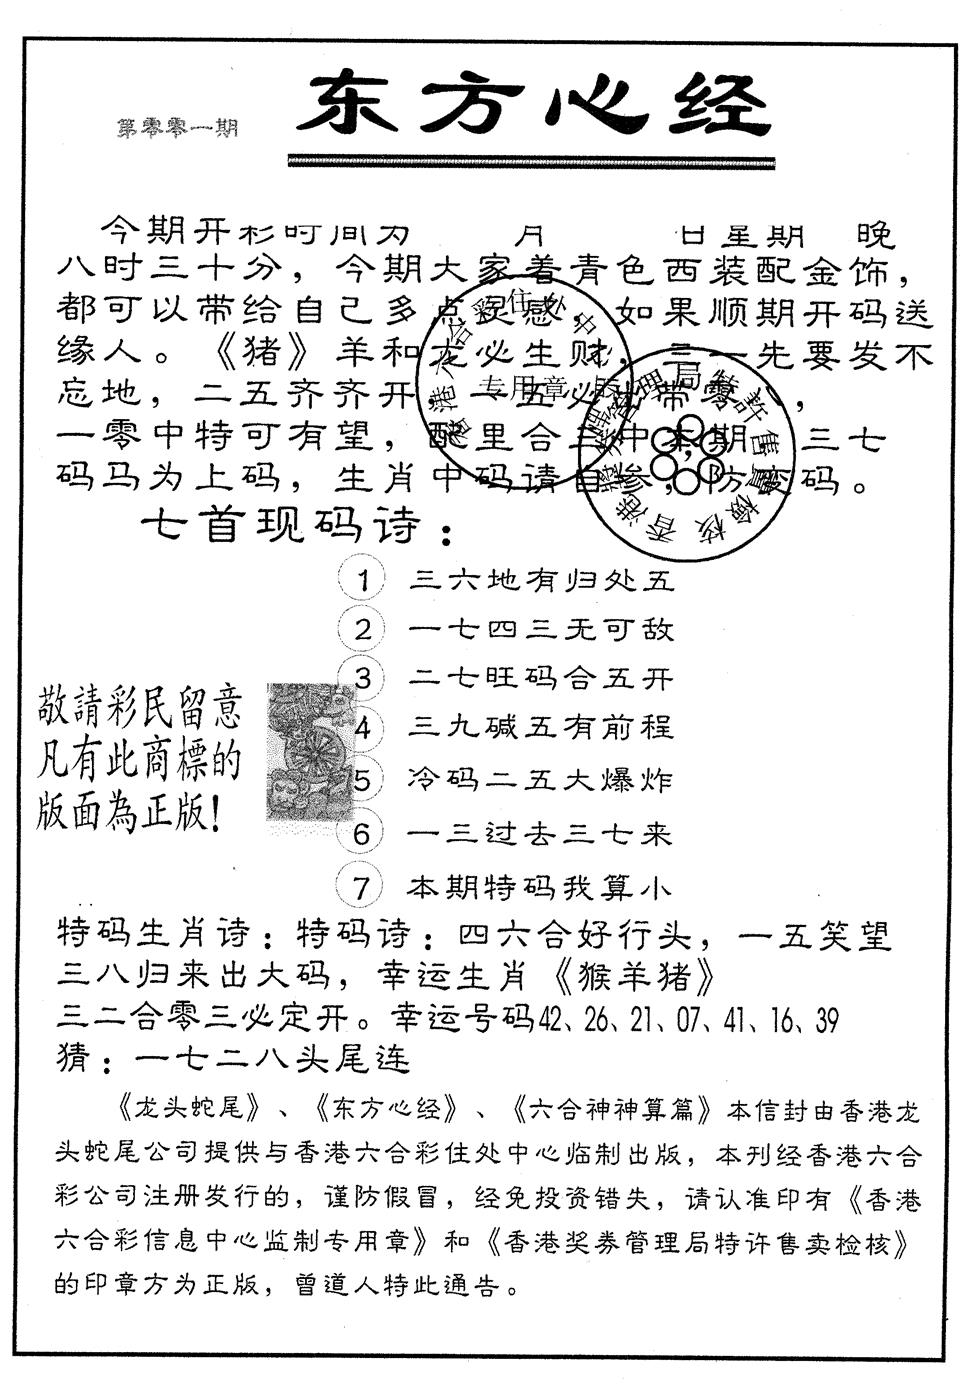 东方心经
第零零一期
今期开彩时间为 月 日星期 晚
八时三十分，今期大家着青色西装配金饰，
都可以带给自己多点灵感，如果顺期开码送
缘人。《猪》羊和龙必生财，三一先要发不
忘地，二五齐齐开，一五必 带零 ，
一零中特可有望，配里合三中本期 三七
码马为上码，生肖中码请自参，防 码。
专用章
七首现码诗：
1 三六地有归处五
2 一七四三无可敌
3 二七旺码合五开
4 三九碱五有前程
5 冷码二五大爆炸
6 一三过去三七来
7 本期特码我算小
敬請彩民留意
凡有此商標的
版面為正版!
特码生肖诗：特码诗：四六合好行头，一五笑望
三八归来出大码，幸运生肖《猴羊猪》
三二合零三必定开。幸运号码42、26、21、07、41、16、39
猜：一七二八头尾连
《龙头蛇尾》、《东方心经》、《六合神神算篇》本信封由香港龙
头蛇尾公司提供与香港六合彩住处中心临制出版，本刊经香港六合
彩公司注册发行的，谨防假冒，经免投资错失，请认准印有《香港
六合彩信息中心监制专用章》和《香港奖券管理局特许售卖检核》
的印章方为正版，曾道人特此通告。